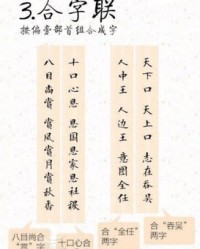 3.合字联
按偏旁部首组合成字
天下口 天上口 志在吞吴
人中王 人边王 意图全任
十口心思 思国思家思社稷
八目尚赏 赏风赏月赏秋香
八目尚合
“赏”字
十口心合
合“全任”
两字
合“吞吴”
两字